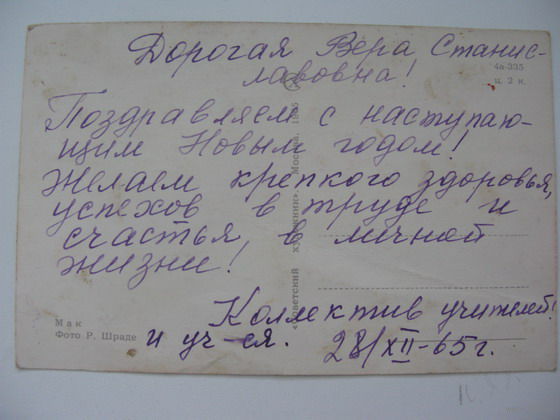 Дорогая Вера Станис-
лавовна!
4а-335
ц. 2 к.
Поздравляем с наступаю-
щим Новым годом!
Желаем крепкого здоровья,
успехов в труде и
счастья, в личной
жизни!
«Советский художник». Москва.
Мак
Фото Р. Шраде
Коллектив учителей!
и уч-ся. 28/XII-65г.